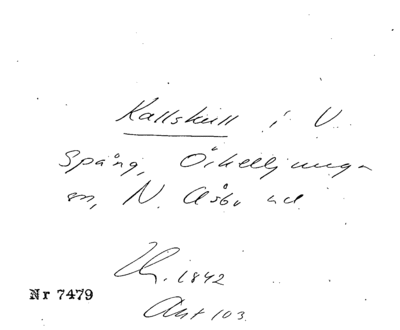 Kallskull i V
Spång, Örkelljunga
sn, N. Åsbo hd
Th. 1842
Akt 103.
Nr 7479